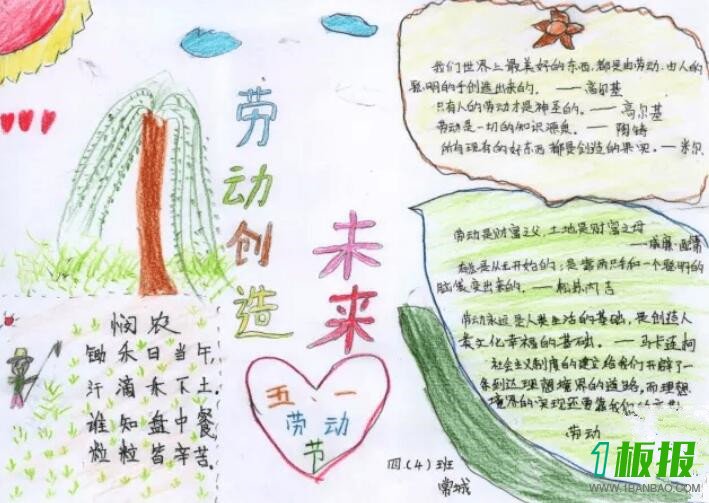 劳动创造
未来
我们世界上最美好的东西,都是由劳动、由人的
聪明的手创造出来的。——高尔基
只有人的劳动才是神圣的。——高尔基
劳动是一切的知识源泉。——陶铸
所有现有的好东西都是创造的果实。——米尔
劳动是财富之父,土地是财富之母
脑袋变出来的。——松苏内吉
劳动永远是人类生活的基础,是创造人
类文化幸福的基础。——马卡连柯
社会主义制度的建立给我们开辟了一
条到达理想境界的道路,而理想
境界的实现还要靠我们的
劳动
悯农
锄禾日当午,
汗滴禾下土。
谁知盘中餐,
粒粒皆辛苦。
五·一
劳动
节
四.(4)班
1板报
WWW.1BANBAO.COM